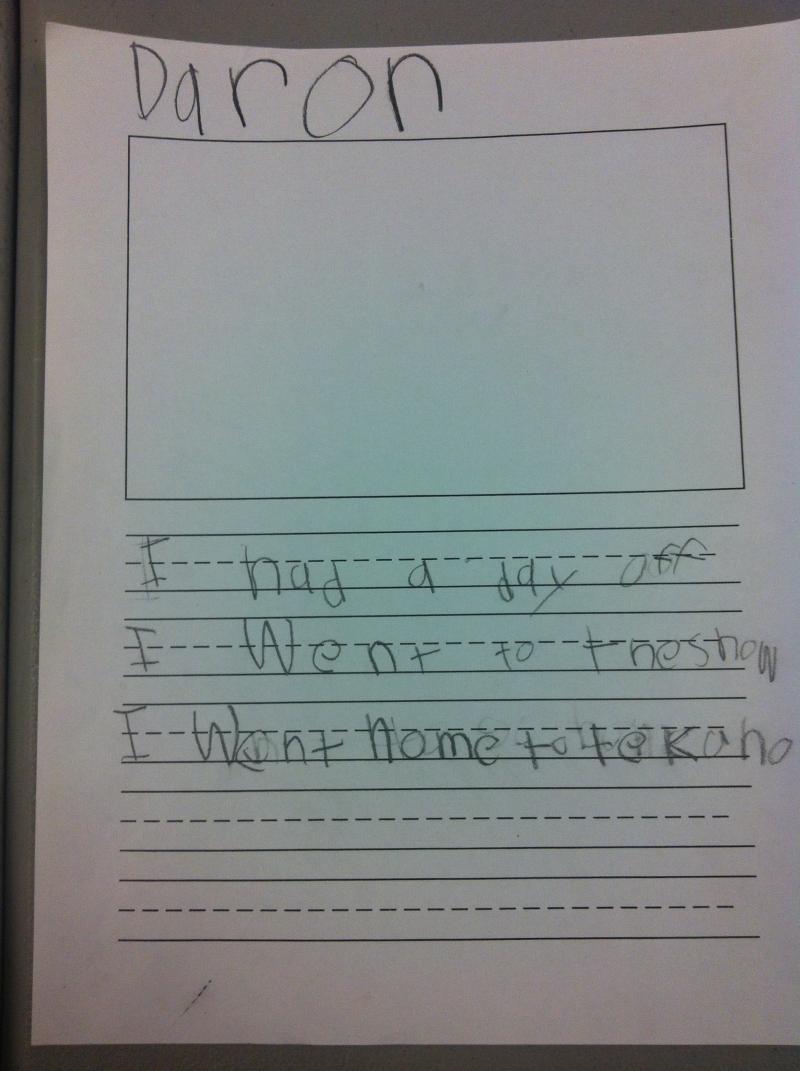 Daron
I had a day off
I Went to theshow
I Went home to tekaho